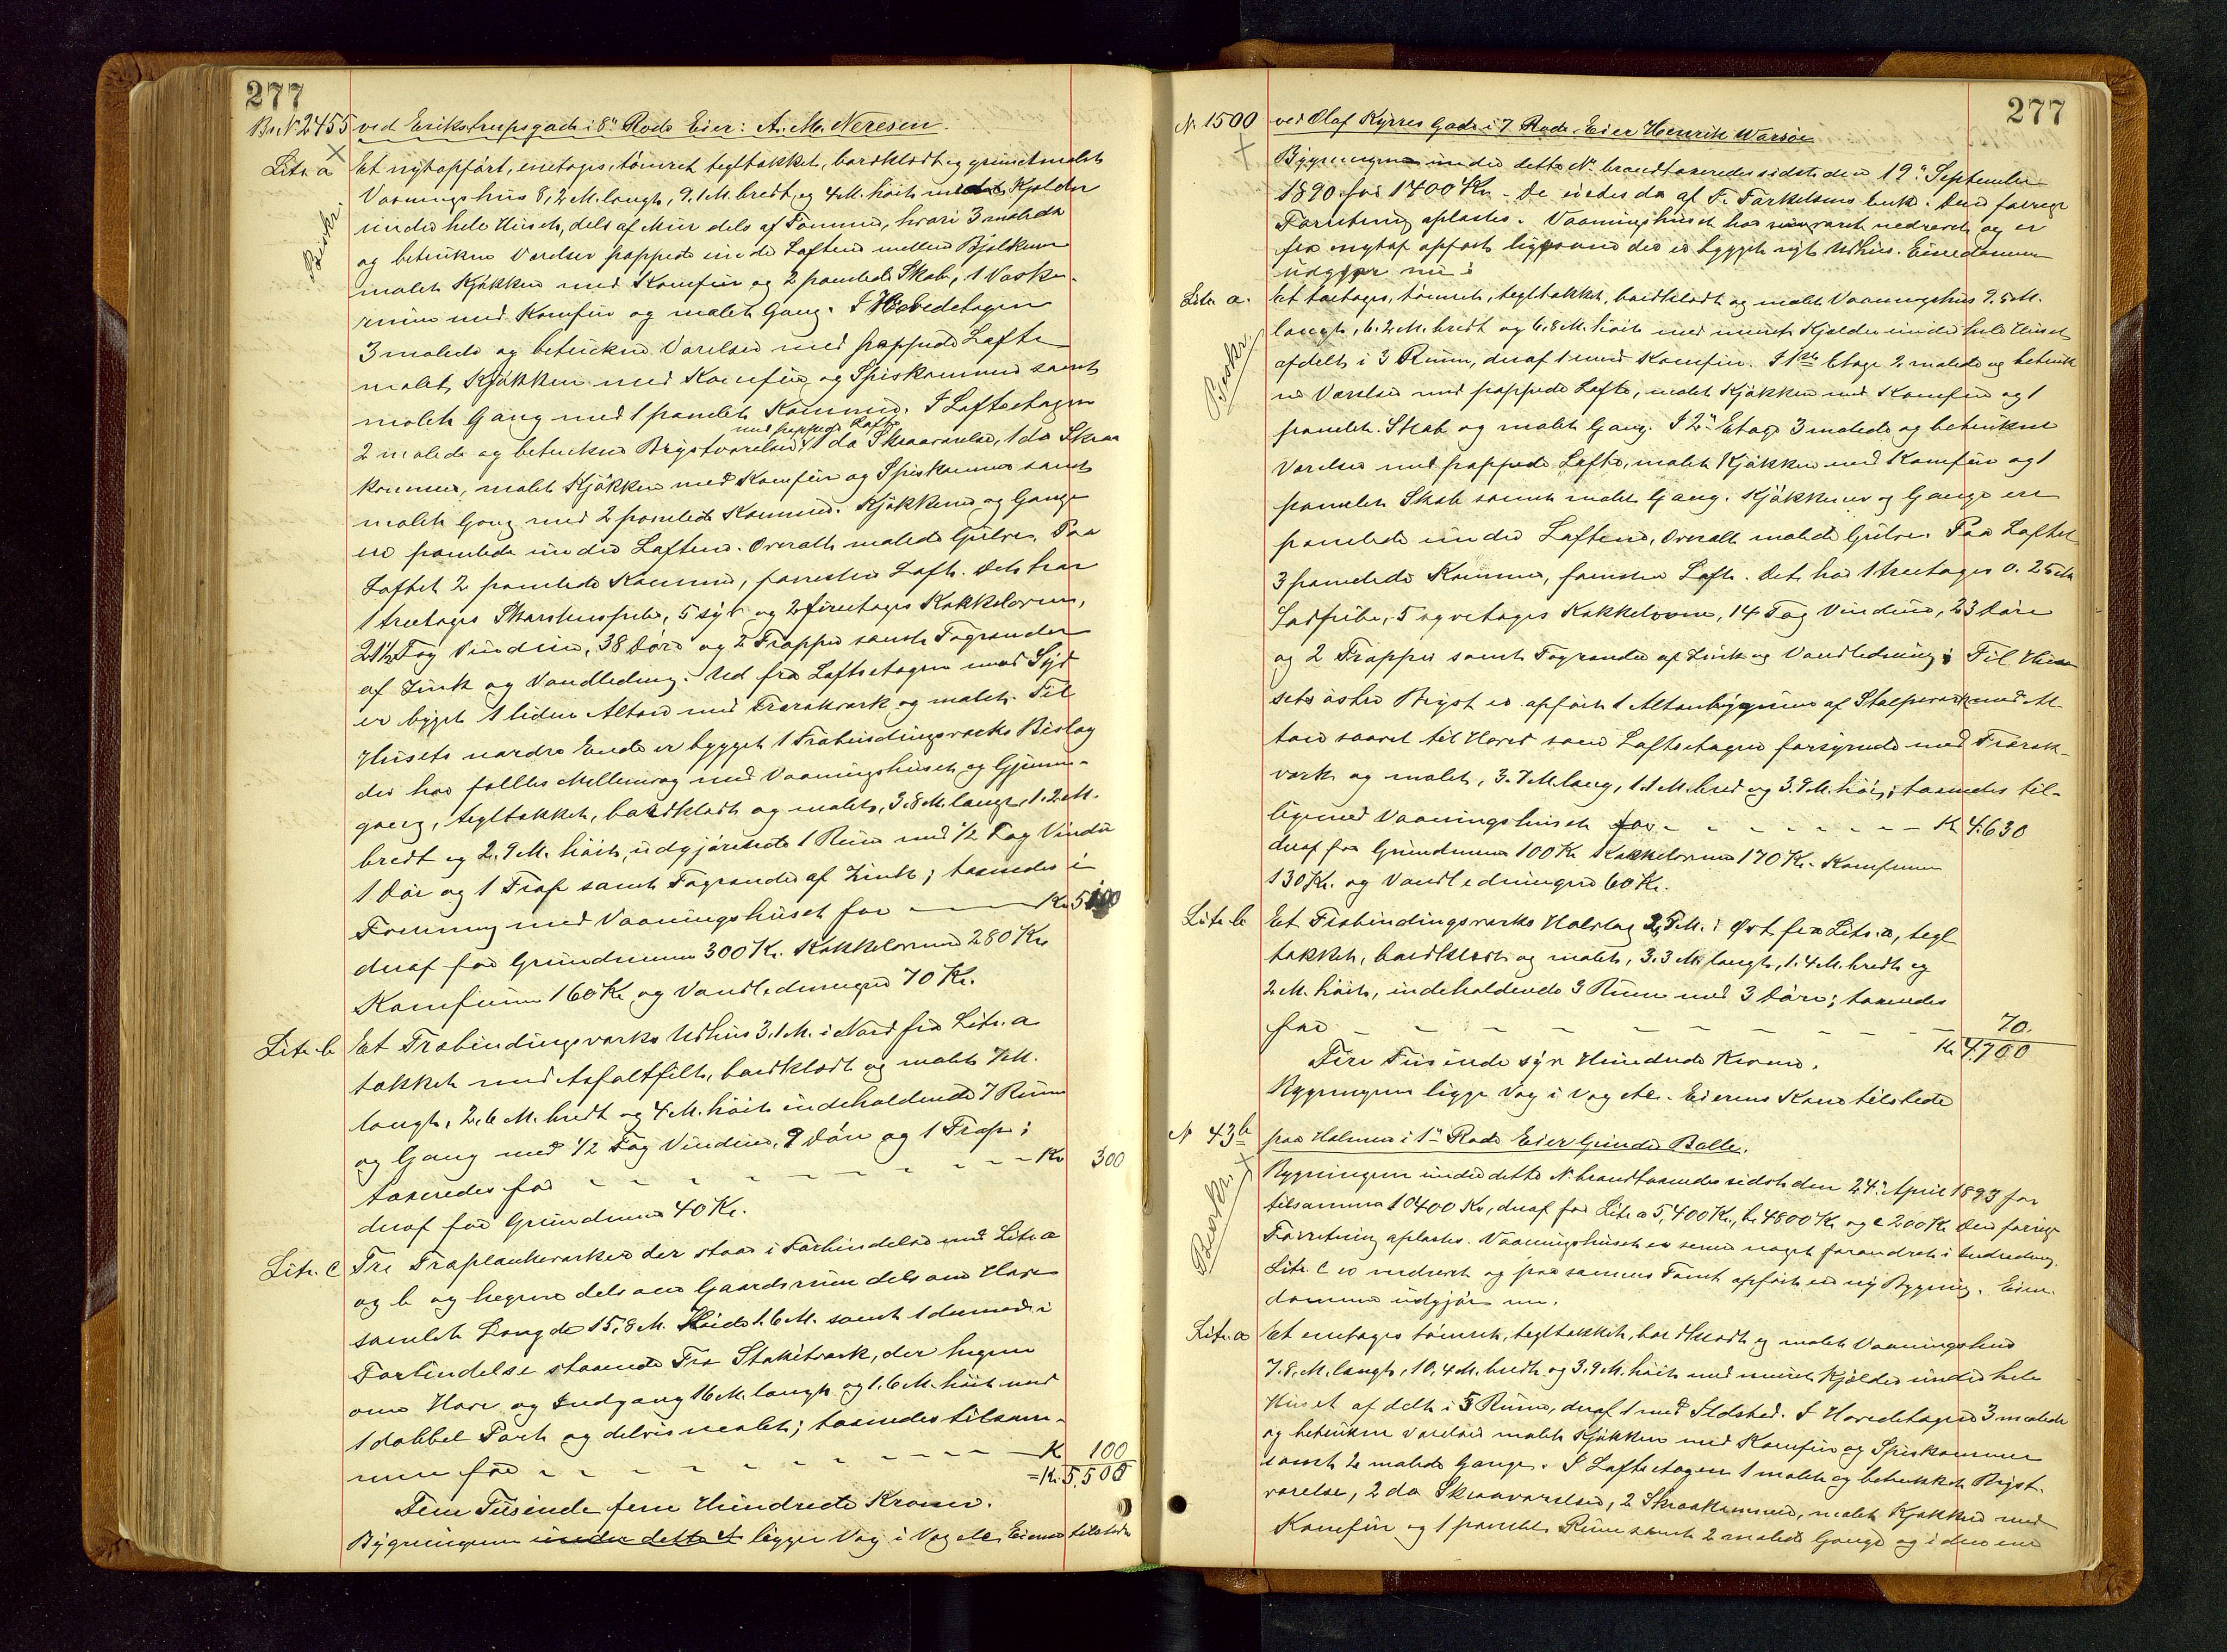 277
Br. N 2455 ved Erikstrupsgade i 8" Rode Eier: A. M. Neresen.
Litr. a Et nyt opført, enetages, tømret tegltækket, bordklædt og grunet malet
Vaaningshus 8,2 M. langt, 9.1 M. bredt og 4 M. høit med Kjælder
Beskr.
under hele Huset, dels af Mur dels af Tømmer, hvori 3 malede
og betrukne Værelser pappede under Loftene mellem Bjælkerne
malet Kjøkken med Komfur og 2 panelede Skabe, 1 Vaske-
rum med Komfur og malet Gang. I Hovedetagen
3 malede og betrukne Værelser med pappede Lofte
malet Kjøkken med Komfur og Spiskammer samt
malet Gang med 1 panelet Kammer. I Loftsetagen
med pappede Lofte
2 malede og betrukne Brystværelser, 1 do Skraaværelse, 1 do Skraa
kammer, malet Kjøkken med Komfur og Spiskammer samt
malet Gang med 2 panelede Kammer. Kjøkkene og Gange
ere panelede under Loftene. Overalt malede Gulve. Paa
Loftet 2 panelede Kammer, forresten Loft. Det har
1 treetages Skorstenspibe, 5 syv og 2 fireetages Kakkelovne,
21½ Fag Vinduer, 38 Døre og 2 Trapper samt Tagrender
af Zink og Vandledning. Ud fra Loftsetagen mod Syd
er bygget 1 liden Altan med Træværk og malet. Til
Husets nordre Ende er bygget 1 Træbindingsværks Bislag
der har fælles Mellemvæg med Vaaningshuset og Gjennem-
gang, tegltækket, bordklædt og malet, 3.8 M. langt, 1.2 M.
bredt og 2.9 M. høit, udgjørende 1 Rum med ½ Fag Vindu
1 Dør og 1 Trap samt Tagrender af Zink; taxeredes i
Forening med Vaaningshuset for — Kr 5100
deraf for Grundmuren 300 Kr. Kakkelovnene 280 Kr
Komfurene 160 Kr og Vandledningen 70 Kr.
Litr. b Et Træbindingsværks Udhus 3,1 M. i Nord fra Litr. a
tækket med Asfaltfilt, bordklædt og malet 7 M.
langt, 2,6 M. bredt og 4 M. høit indeholdende 7 Rum
og Gang med ½ Fag Vinduer, 9 Døre og 1 Trap;
taxeredes for - - - - - - - - Kr 300
deraf for Grundmuren 40 Kr.
Litr. c Tre Træplankeværker der staar i Forbindelse med Litr. a
og b og hegner dels om Gaardsrum dels om Have
samlet Længde 15,8 M. Høide 1.6 M. samt 1 dermed i
Forbindelse staaende Træ Stakitværk, der hegner
om Have og Indgang 16 M. langt og 1.6 M. høit med
1 dobbel Port og delvis malet; taxeredes tilsam-
men for - - - - - - - - K 100
= Kr. 5,500
Fem Tusinde fem Hundrede Kroner.
Bygningerne under dette N ligger Væg i Væg etc. Eieren tilstede
277
N. 1500 ved Olaf Kyrres Gade i 7 Rode. Eier Henrik Warsøe
Bygningerne under dette N. brandtaxeredes sidst den 19" September
1890 for 1700 Kr. De eiedes da af F. Torkelsens Enke. Den forrige
Forretning opløstes. Vaaningshuset har været nedrevet og er
fra nyt af opført ligesom der er bygget nyt Udhus. Eiendommen
udgjør nu:
Litr. a. Et toetages, tømret, tegltækket, bordklædt og malet Vaaningshus 9.5 M.
langt, 6.2 M. bredt og 6,8 M. høit med muret Kjælder under hele Huset
Beskr.
afdelt i 3 Rum, deraf 1 med Komfur. I 1ste Etage 2 malede og betruk
ne Værelser med pappede Lofte, malet Kjøkken med Komfur og 1
panelet Skab og malet Gang. I 2" Etage 3 malede og betrukne
Værelser med pappede Lofte, malet Kjøkken med Komfur og 1
panelet Skab samt malet Gang. Kjøkkener og Gange ere
panelede under Loftene, Overalt malede Gulve. Paa Loftet
3 panelede Kammer, forresten Loft. Det har 1 treetages 0.25 M.
Jordpibe, 5 syvetages Kakkelovne, 14 Fag Vinduer, 23 Døre
og 2 Trapper samt Tagrender af Zink og Vandledning; Til Hu-
sets østre Bryst er opført 1 Altanbygning af Stolpeværk med Al-
tan saavel til Hoved som Loftsetagen forsynede med Træræk-
værk og malet, 3.7 M. lang, 1.1 M. bred og 3.9 M. høi; taxeredes til-
ligemed Vaaningshuset for - - - - - - - Kr 4630
deraf for Grundmuren 100 Kr Kakkelovnene 170 Kr. Komfurene
130 Kr. og Vandledningen 60 Kr.
Litr. b Et Træbindingsværks Halvtag 3,5 M. i Øst fra Litr. a, tegl
tækket, bordklædt og malet, 3.3 M. langt, 1.4 M. bredt og
2 M. høit, indeholdende 3 Rum med 3 Døre; taxeredes
for - - - - - - - - - 70.
Kr 4700
Fire Tusinde syv Hundrede Kroner.
Bygningerne ligge Væg i Væg etc. Eierens Kone tilstede
N 43b paa Holmen i 1" Rode Eier Gunder Balle.
Beskr.
Bygningerne under dette N. brandtaxeredes sidst den 24" April 1893 for
tilsammen 10400 Kr, deraf for Litr. a 5,400 Kr., b. 4800 Kr og c 200 Kr Den forrige
Forretning opløstes. Vaaningshuset er senere noget forandret i Indredning.
Litr. c er nedrevet og paa samme Tomt opført en ny Bygning. Eien-
dommen udgjør nu.
Litr. a Et enetages tømret, tegltækket, bordklædt og malet Vaaningshus
7.8 M. langt, 10,4 M. bredt og 3,9 M. høit med muret Kjælder under hele
Huset afdelt i 5 Rum, deraf 1 med Ildsted. I Hovedetagen 3 malede
og betrukne Værelser malet Kjøkken med Komfur og Spiskammer
samt 2 malede Gange. I Loftsetagen 1 malet og betrukket Bryst-
værelse, 2 do Skraaværelser, 2 Skraakammer, malet Kjøkken med
Komfur og 1 panelet Rum samt 2 malede Gange og i den ene